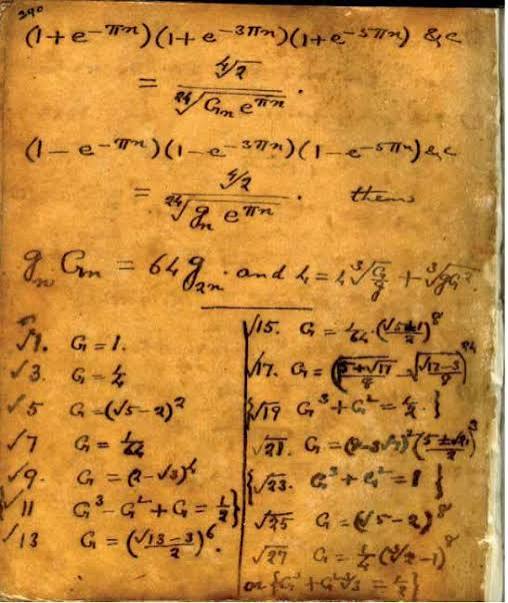 390
(1+e^{-πn})(1+e^{-3πn})(1+e^{-5πn}) &c
= ∜2 / ²⁴√(G_n e^{πn}).
(1-e^{-πn})(1-e^{-3πn})(1-e^{-5πn}) &c
= ∜2 / ²⁴√(g_n e^{πn}). then
g_n G_n = 64 g_{2n}. and
√1. G = 1.
√3. G = 1/4
√5 G = (√5-2)²
√7 G = 1/64
√9. G = (2-√3)⁴
{√11 G³-G²+G = 1/2}
√13 G = ((√13-3)/2)⁶.
√15. G = 1/64·((√5±1)/2)⁸
√17. G = (√((5+√17)/8) - √((√17-3)/8))²⁴
{√19 G³+G² = 1/2.}
√21. ((5±√21)/2)³
{√23. G³+G² = 1}
√25 G = (√5-2)⁸
√27 G = 1/4(∛2-1)⁸
or = 1/2}